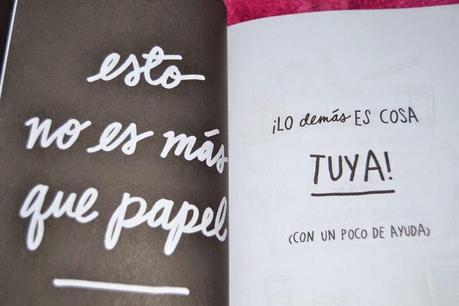 esto
no es más
que papel
¡LO demás ES COSA
TUYA!
(CON UN POCO DE AYUDA)